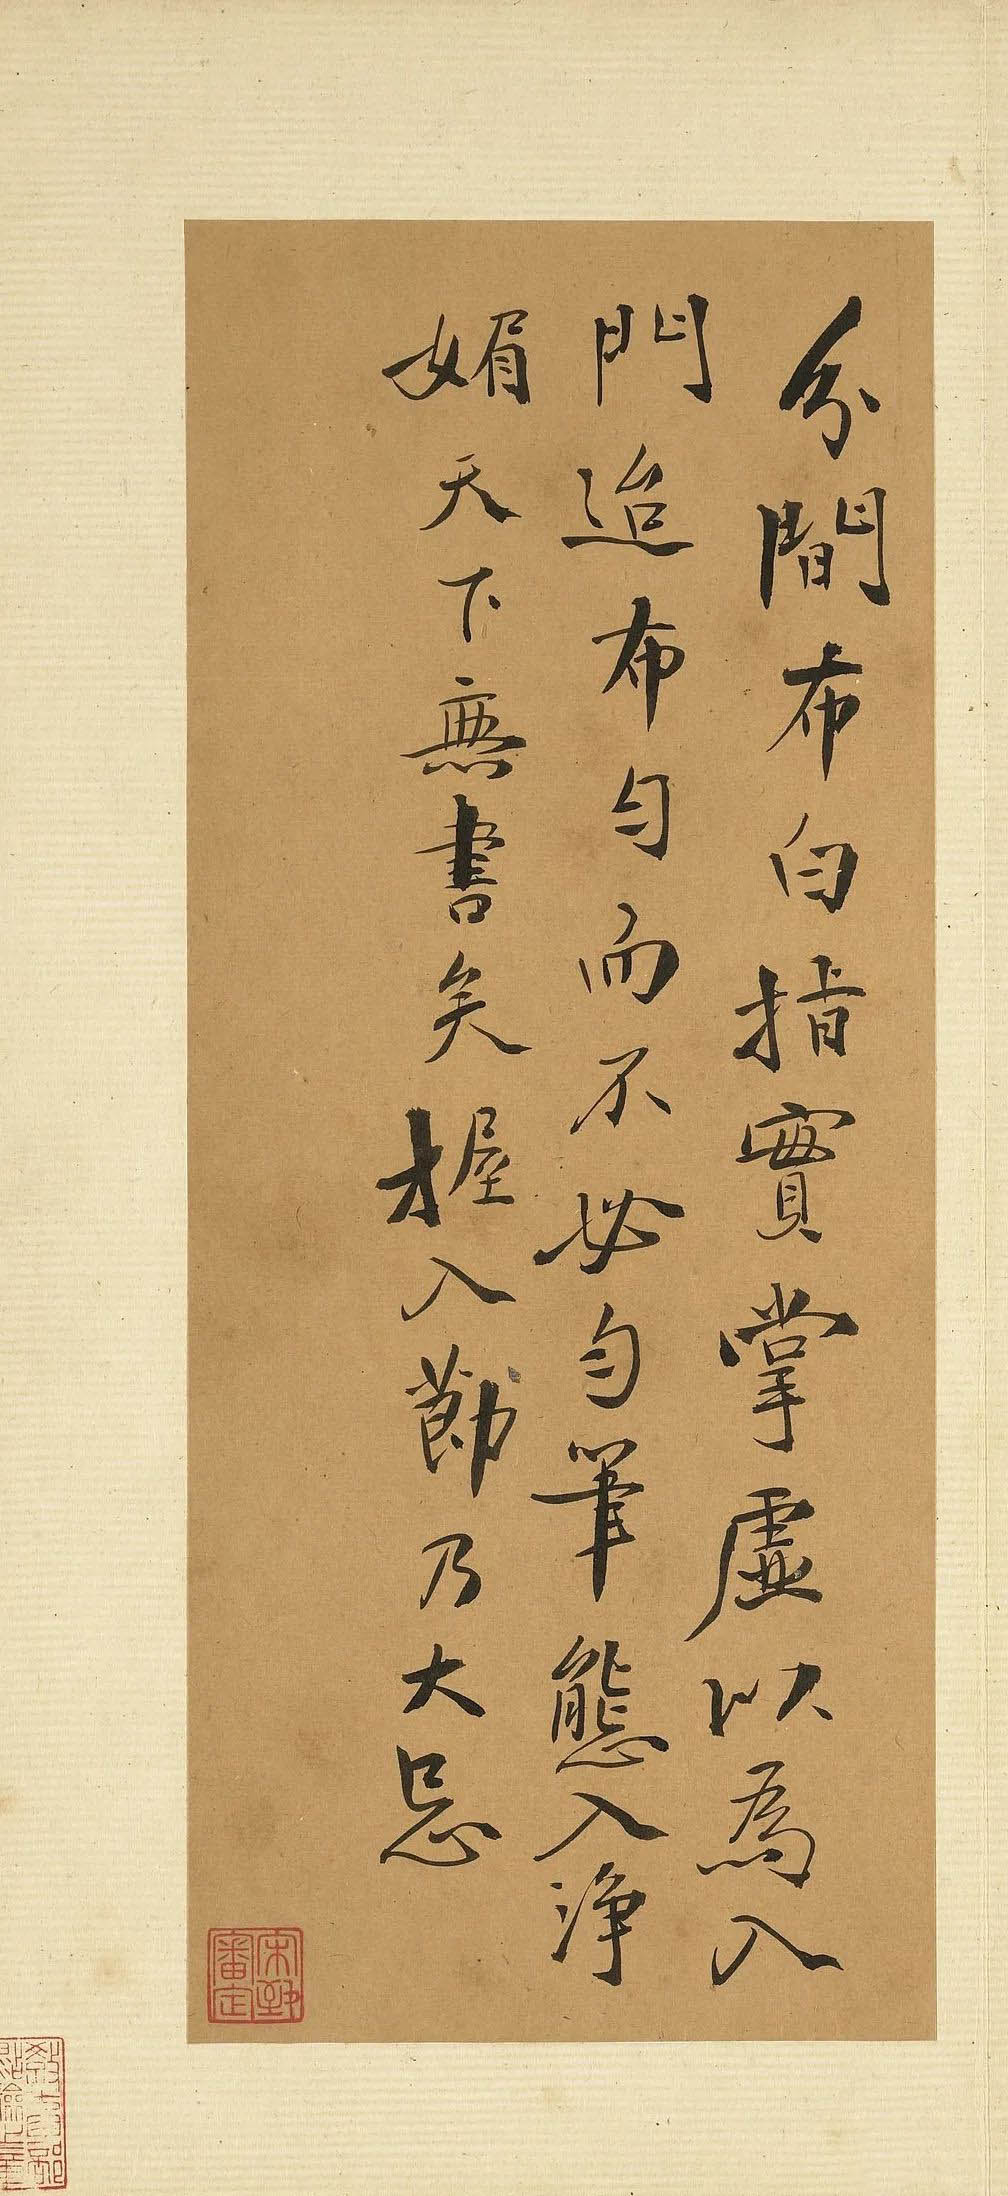 分間布白指實掌虛以為入
門迨布勻而不必勻筆態入淨
媚天下無書矣握入節乃大忌
宋犖審定